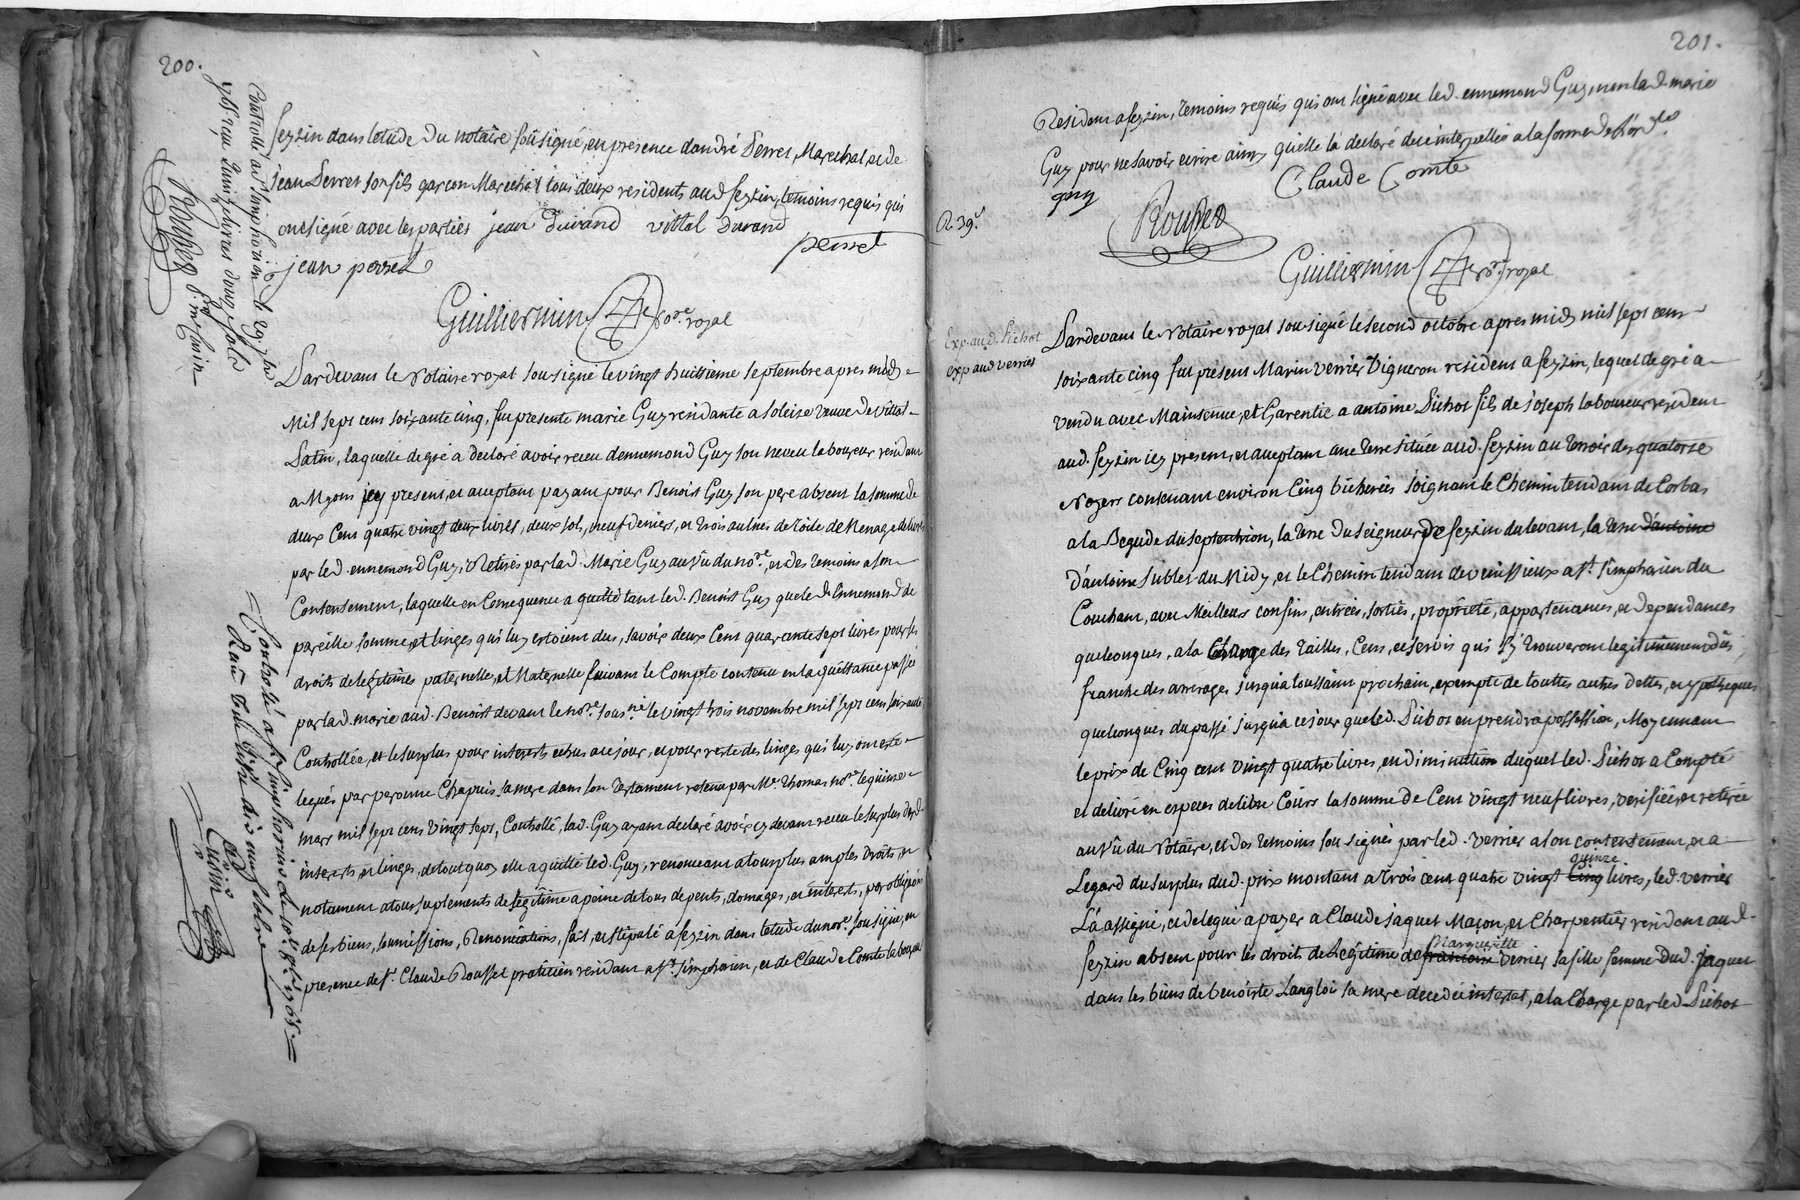 200.
feyzin dans letude du notaire sousigné, en presence dandré Perret Marechal, et de
jean Perret son fils garcon Marechal tous deux residents aud. feyzin, temoins requis qui
ont signé avec les parties jean durand vittal durand
perret
jean perret
Guilliermin no.re royal
Pardevant le Notaire royal sousigné le vingt huittieme septembre apres midy
Mil sept cent soixante cinq, fut presente marie Guy residante a soleize veuve de vittal
Satin, laquelle de gré a declaré avoir receu dennemond Guy son neveu laboureur resident
a Myons icy present, et acceptant payant pour Benoist Guy son pere absent la somme de
deux cent quatre vingt deux livres, deux sols, neuf deniers, et trois aulnes de toile de menage
par led. ennemond Guy, Retirés par lad. Marie Guy au vû du no.re, et des temoins a son
Consentement, laquelle en Consequence a quitté tant led. Benoist Guy que led. Ennemond de
pareille somme, et linges qui luy estoient dus, savoir deux Cent quarante sept livres pour ses
droits de legitimes paternelle, et Maternelle suivant le Compte contenu en la quittance passée
par lad. marie aud. Benoist devant le no.re sous.né le vingt trois novembre mil sept cent soixante
Controllée, et le surplus pour interests echus a ce jour, et pour reste des linges qui luy ont esté
legués par peronne Chapuis sa mere dans son Testament retenu par Me. Thomas no.re le quinze
mars mil sept cent vingt sept, Controllé, lad. Guy ayant declaré avoir cy devant receu le surplus desd.
interests, et linges, de tout quoy elle a quitté led. Guy, renonceant a tous plus amples droits, et
notament a tous suplements de legitime a peine de tous depents, domages, et interests, par obligation
de ses biens, soumissions, Renonciations, fait, et stipulé a feyzin dans letude du no.re sousigné, en
presence de Sr. Claude Rousset praticien residant a St. Simphorien, et de Claude Comte laboureur
Controllé a St. Simphorien le 29 7bre
1765 reçu
201.
Resident a feyzin, temoins requis qui ont signé avec led. ennemond Guy, non lad. marie
Guy pour ne savoir ecrire ainsy quelle la declaré de ce interpellée a la forme de l'ord.ce
Claude Comte
guy
Rousset
R. 39.s
Guilliermin no.re royal
Exp. aud. Pichot
exp. aud verrier
Pardevant le Notaire royal sousigné le second octobre apres midy mil sept cent
soixante cinq fut présent Marin verrier Vigneron resident a feyzin, lequel de gré a
vendu avec Maintenue, et Garentie a antoine Pichot fils de joseph laboureur resident
aud. feyzin icy present, et acceptant une terre située aud. feyzin au terroir des quatorze
Noyers contenant environ Cinq bicherées joignant le Chemin tendant de Corbas
a la Begude du septentrion, la terre du seigneur de feyzin du levant, la terre d'antoine
d'antoine Sublet du Midy, et le Chemin tendant de venissieux a St. Simphorien du
Couchant, avec Meilleurs confins, entrées, sorties, proprieté, appartenances, et dependances
quelconques, a la Charge des tailles, Cens, et servis qui s'y trouveront legitimement dûs,
franche des arrerages jusqu'a toussaint prochain, exempte de touttes autres dettes, et ypotheques
quelconques du passé jusqu'a ce jour que led. Pichot en prendra possession, Moyennant
le prix de Cinq cent vingt quatre livres, en diminution duquel led. Pichot a Compté
et delivré en especes de libre Cours la somme de Cent vingt neuf livres, verifiée, et retirée
au vû du Notaire, et des temoins sousignés par led. verrier a son contentement, et a
Legard du surplus dud. prix montant a trois cent quatre vingt cinq quinze livres, led. verrier
L'a assigné, et delegué a payer a Claude jaquet Maçon, et Charpentier resident aud.
feyzin absent pour les droit de Legitime de francoise Marguerite verrier sa fille femme dud. jaquet
dans les biens de benoiste Langlois sa mere decedée intestat, a la Charge par led. Pichot